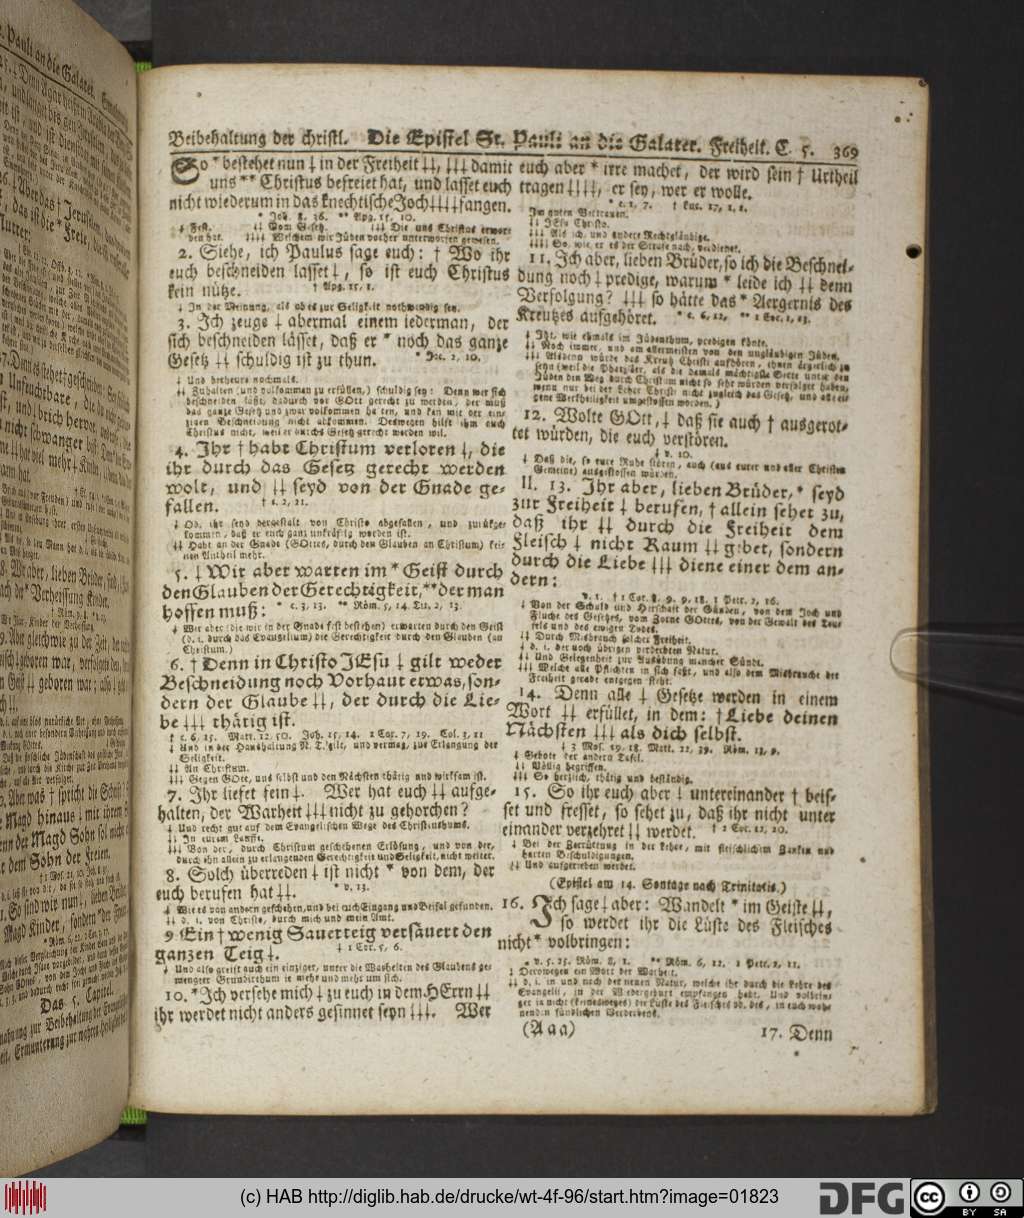 Beibehaltung der christl. Die Epistel St. Pauli an die Galater. Freiheit. C. 5. 369
So * bestehet nun ⸸ in der Freiheit ⸸⸸, ⸸⸸⸸ damit
uns ** Christus befreiet hat, und lasset euch
nicht wiederum in das knechtische Joch ⸸⸸⸸⸸ fangen.
* Joh. 8, 36. ** Apg. 15, 10.
⸸ Fest. ⸸⸸ Vom Gesetz. ⸸⸸⸸ Die uns Christus erwor-
ben hat. ⸸⸸⸸⸸ Welchem wir Jüden vorher unterworfen gewesen.
2. Siehe, ich Paulus sage euch: † Wo ihr
euch beschneiden lasset ⸸, so ist euch Christus
kein nütze. † Apg. 15, 1.
⸸ In der Meinung, als ob es zur Seligkeit nothwendig sey.
3. Ich zeuge ⸸ abermal einem iederman, der
sich beschneiden lässet, daß er * noch das ganze
Gesetz ⸸⸸ schuldig ist zu thun. * Jac. 2, 10.
⸸ Und betheure nochmals.
⸸⸸ Zuhalten (und volkommen zu erfüllen,) schuldig sey: Denn wer sich
beschneiden läßt, dadurch vor GOtt gerecht zu werden, der muß
das ganze Gesetz und zwar volkommen halten, und kan mit der ein-
zigen Beschneidung nicht abkommen. Deswegen hilft ihm auch
Christus nicht, weil er durchs Gesetz gerecht werden wil.
4. Ihr † habt Christum verloren ⸸, die
ihr durch das Gesetz gerecht werden
wolt, und ⸸⸸ seyd von der Gnade ge-
fallen. † c. 2, 21.
⸸ Od. ihr seyd dergestalt von Christo abgefallen, und zurükge-
kommen, daß er euch ganz unkräftig worden ist.
⸸⸸ Habt an der Gnade (GOttes, durch den Glauben an Christum) kei-
nen Antheil mehr.
5. ⸸ Wir aber warten im * Geist durch
den Glauben der Gerechtigkeit, ** der man
hoffen muß: * c. 3, 13. ** Röm. 5, 14. Tit. 2, 13.
⸸ Wir aber (die wir in der Gnade fest bestehen) erwarten durch den Geist
(d. i. durch das Evangelium) die Gerechtigkeit durch den Glauben (an
Christum.)
6. † Denn in Christo JEsu ⸸ gilt weder
Beschneidung noch Vorhaut etwas, son-
dern der Glaube ⸸⸸, der durch die Lie-
be ⸸⸸⸸ thätig ist.
† c. 6, 15. Matt. 12, 50. Joh. 15, 14. 1 Cor. 7, 19. Col. 3, 11
⸸ Und in der Haushaltung N. T. gilt, und vermag, zur Erlangung der
Seligkeit.
⸸⸸ An Christum.
⸸⸸⸸ Gegen GOtt, uns selbst und den Nächsten thätig und wirksam ist.
7. Ihr liefet fein ⸸. Wer hat euch ⸸⸸ aufge-
halten, der Warheit ⸸⸸⸸ nicht zu gehorchen?
⸸ Und recht gut auf dem Evangelischen Wege des Christenthums.
⸸⸸ In eurem Lauffe.
⸸⸸⸸ Von der, durch Christum geschehenen Erlösung, und von der,
durch ihn allein zu erlangenden Gerechtigkeit und Seligkeit, nicht weiter.
8. Solch überreden ⸸ ist nicht * von dem, der
euch berufen hat ⸸⸸. * v. 13.
⸸ Wie es von andern geschehen, und bei euch Eingang und Beifal gefunden.
⸸⸸ d. i. von Christo, durch mich und mein Amt.
9. Ein † wenig Sauerteig versäuert den
ganzen Teig ⸸. † 1 Cor. 5, 6.
⸸ Und also greift auch ein einziger, unter die Warheiten des Glaubens ge-
mengter Grundirthum ie mehr und mehr um sich.
10. * Ich versehe mich ⸸ zu euch in dem HErrn ⸸⸸
ihr werdet nicht anders gesinnet seyn ⸸⸸⸸. Wer
euch aber * irre machet, der wird sein † Urtheil
tragen ⸸⸸⸸⸸, er sey, wer er wolle.
* c. 1, 7. † Luc. 17, 1. 2.
Im guten Vertrauen.
⸸⸸ JEsu Christo.
⸸⸸⸸ Als ich und andere Rechtgläubige.
⸸⸸⸸⸸ So, wie er es der Strafe nach, verdienet.
11. Ich aber, lieben Brüder, so ich die Beschnei-
dung noch ⸸ predige, warum * leide ich ⸸⸸ denn
Verfolgung? ⸸⸸⸸ so hätte das * Aergernis des
Kreutzes aufgehöret. * c. 6, 12. ** 1 Cor. 1, 23.
⸸ Itzt, wie ehmals im Jüdenthum, predigen könte.
⸸⸸ Noch immer, und am allermeisten von den ungläubigen Jüden.
⸸⸸⸸ Alsdenn würde das Kreutz Christi aufhören, ihnen ärgerlich zu
seyn (weil die Pharisäer, als die damals mächtigste Secte unter den
Jüden den Weg durch Christum nicht so sehr würden verfolget haben,
wenn nur bei der Lehre Christi nicht zugleich das Gesetz, und alle ei-
gene Werkheiligkeit umgestossen worden.)
12. Wolte GOtt, ⸸ daß sie auch † ausgerot-
tet würden, die euch verstören.
† v. 10.
⸸ Daß die, so eure Ruhe stören, auch (aus eurer und aller Christen
Gemeine) ausgestossen würden.
II. 13. Ihr aber, lieben Brüder, * seyd
zur Freiheit ⸸ berufen, † allein sehet zu,
daß ihr ⸸⸸ durch die Freiheit dem
Fleisch ⸸ nicht Raum ⸸⸸ gebet, sondern
durch die Liebe ⸸⸸⸸ diene einer dem an-
dern:
* v. 1. † 1 Cor. 8, 9. 9, 18. 1 Petr. 2, 16.
⸸ Von der Schuld und Herschaft der Sünden, von dem Joch und
Fluche des Gesetzes, vom Zorne GOttes, von der Gewalt des Teu-
fels und des ewigen Todes.
⸸⸸ Durch Misbrauch solcher Freiheit.
⸸ d. i. der noch übrigen verderbten Natur.
⸸⸸ Und Gelegenheit zur Ausübung mancher Sünde.
⸸⸸⸸ Welche alle Pflichten in sich faßt, und also dem Misbrauche der
Freiheit gerade entgegen steht.
14. Denn alle ⸸ Gesetze werden in einem
Wort ⸸⸸ erfüllet, in dem: † Liebe deinen
Nächsten ⸸⸸⸸ als dich selbst.
† 3 Mos. 19, 18. Matt. 22, 39. Röm. 13, 9.
⸸ Gebote der andern Tafel.
⸸⸸ Völlig begriffen.
⸸⸸⸸ So herzlich, thätig und beständig.
15. So ihr euch aber ⸸ untereinander † beis-
set und fresset, so sehet zu, daß ihr nicht unter
einander verzehret ⸸⸸ werdet. † 2 Cor. 12, 20.
⸸ Bei der Zerrüttung in der Lehre, mit fleischlichem Zanken und
harten Beschuldigungen.
⸸⸸ Und aufgerieben werdet.
(Epistel am 14. Sontage nach Trinitatis.)
16. Ich sage ⸸ aber: Wandelt * im Geiste ⸸⸸,
so werdet ihr die Lüste des Fleisches
nicht * volbringen:
* v. 5. 25. Röm. 8, 1. ** Röm. 6, 12. 1 Petr. 2, 11.
⸸ Deswegen ein Wort der Warheit.
⸸⸸ d. i. in und nach der neuen Natur, welche ihr durch die Lehre des
Evangelii, in der Wiedergeburt empfangen habt. Und volbrin-
get in nicht (keinesweges) die Lüste des Fleisches od. des, in euch woh-
nenden sündlichen Verderbens.
(Aaa) 17. Denn
(c) HAB http://diglib.hab.de/drucke/wt-4f-96/start.htm?image=01823
DFG
cc BY SA